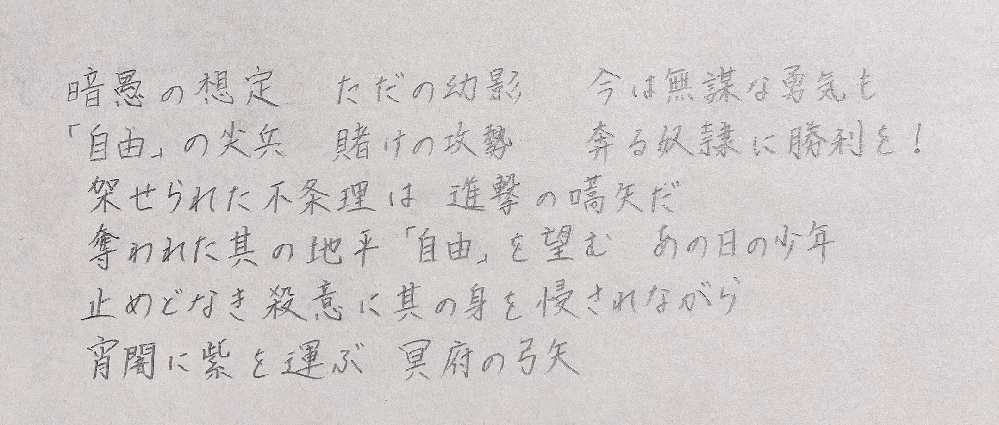 暗愚の想定　ただの幼影　今は無謀な勇気も
「自由」の尖兵　賭けの攻勢　奔る奴隷に勝利を！
架せられた不条理は　進撃の嚆矢だ
奪われた其の地平「自由」を望む　あの日の少年
止めどなき殺意に其の身を侵されながら
宵闇に紫を運ぶ　冥府の弓矢